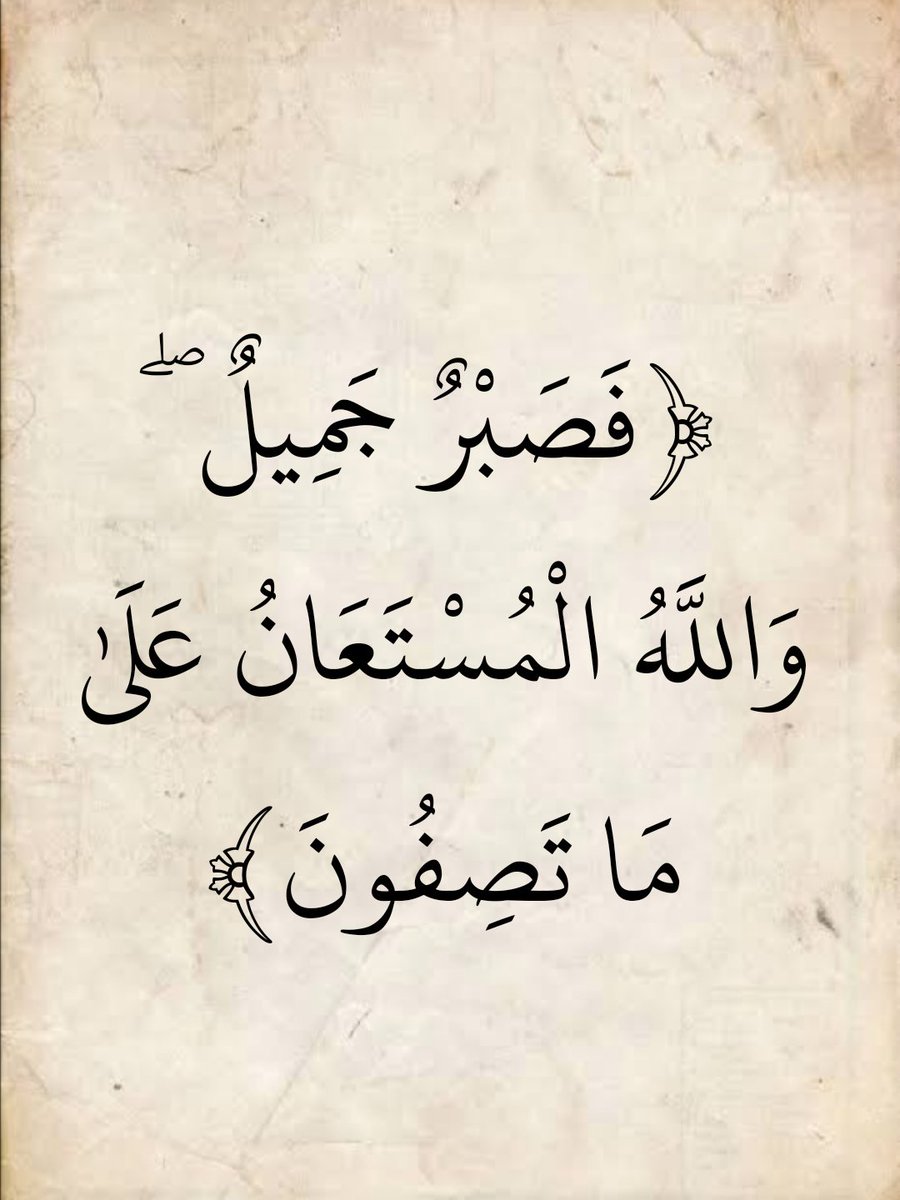 ﴿فَصَبْرٌ جَمِيلٌ ۖ
وَاللَّهُ الْمُسْتَعَانُ عَلَىٰ
مَا تَصِفُونَ﴾